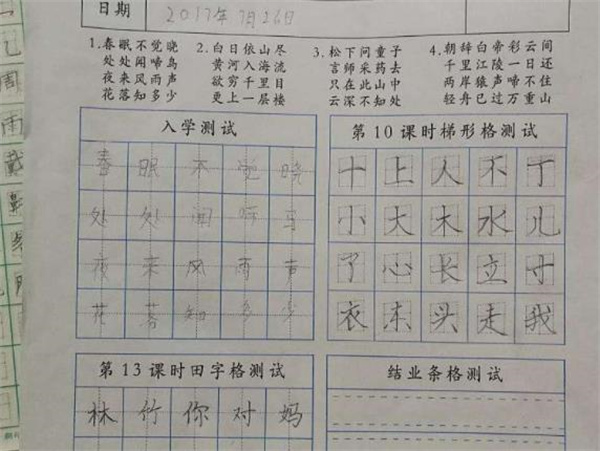 日期 2017年7月26日
1.春眠不觉晓 2.白日依山尽 3.松下问童子 4.朝辞白帝彩云间
处处闻啼鸟 黄河入海流 言师采药去 千里江陵一日还
夜来风雨声 欲穷千里目 只在此山中 两岸猿声啼不住
花落知多少 更上一层楼 云深不知处 轻舟已过万重山
入学测试
春眠不觉晓
处处闻啼
夜来风雨声
花落知多少
第10课时梯形格测试
十上人不丁
小大木水儿
了心长立寸
衣东头走我
第13课时田字格测试
林竹你对妈
结业条格测试